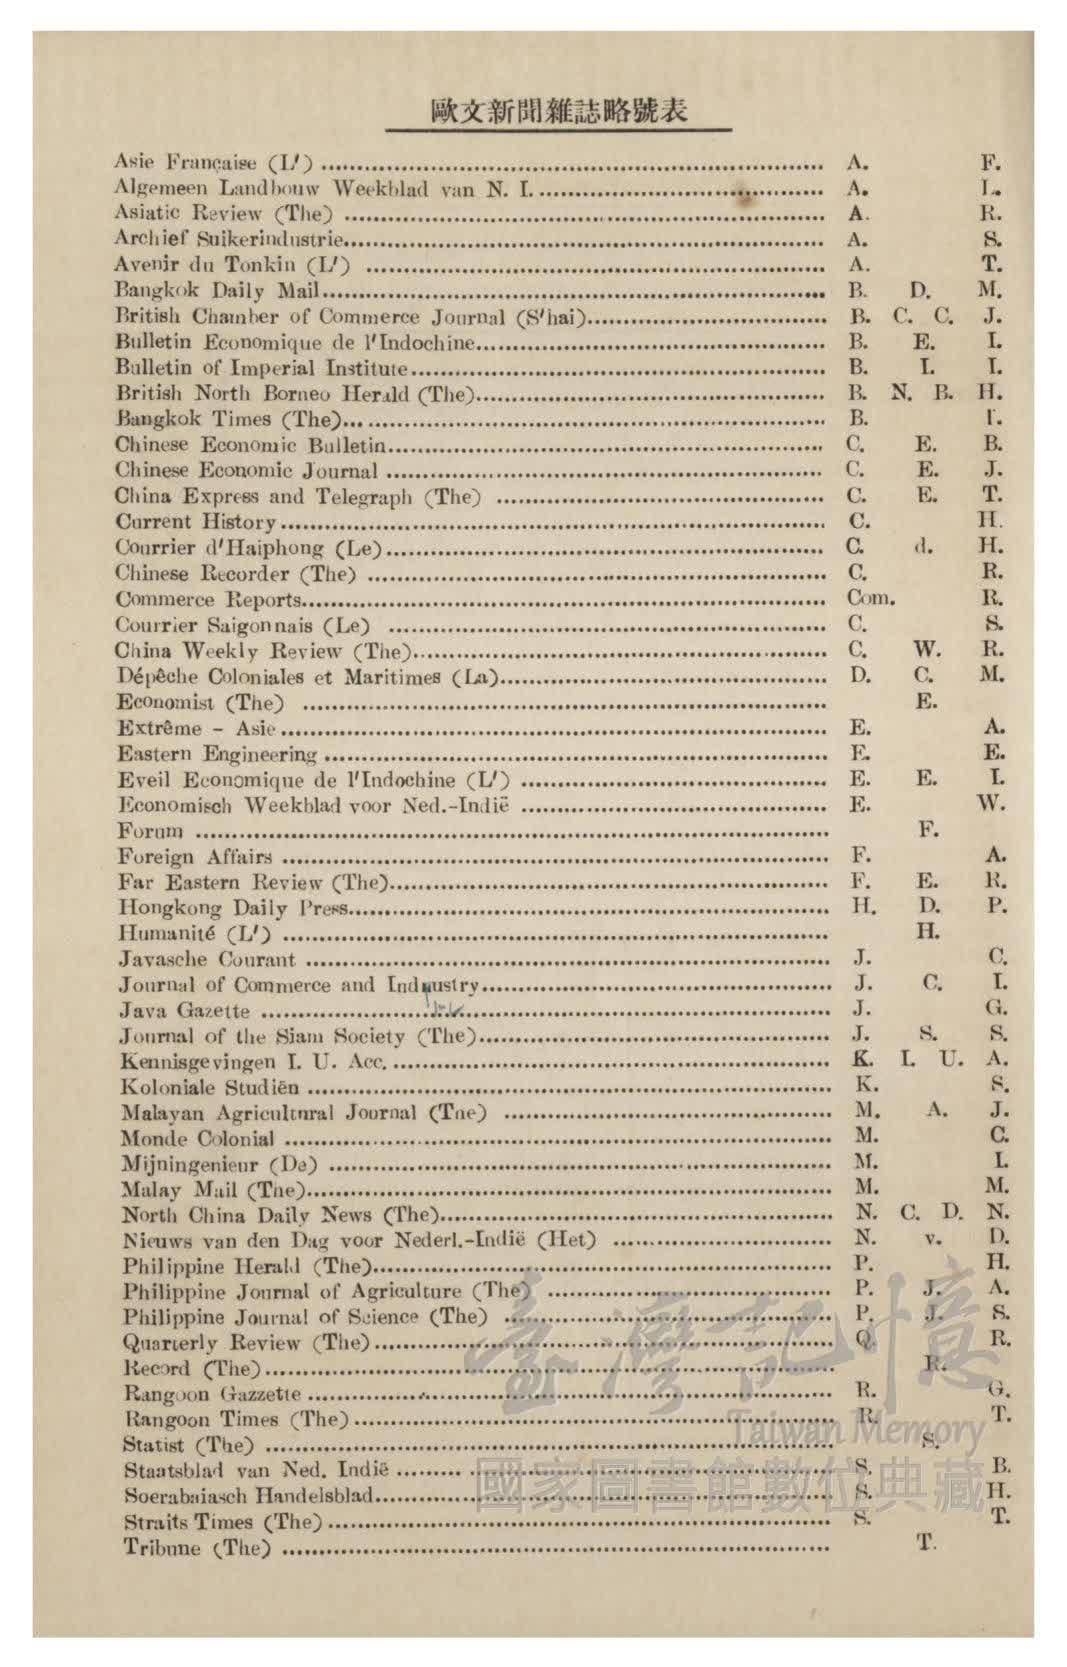 歐文新聞雜誌略號表
Asie Française (L') A. F.
Algemeen Landbouw Weekblad van N. I. A. L.
Asiatic Review (The) A. R.
Archief Suikerindustrie A. S.
Avenir du Tonkin (L') A. T.
Bangkok Daily Mail B. D. M.
British Chamber of Commerce Journal (S'hai) B. C. C. J.
Bulletin Economique de l'Indochine B. E. I.
Bulletin of Imperial Institute B. I. I.
British North Borneo Herald (The) B. N. B. H.
Bangkok Times (The) B. T.
Chinese Economic Bulletin C. E. B.
Chinese Economic Journal C. E. J.
China Express and Telegraph (The) C. E. T.
Current History C. H.
Courrier d'Haiphong (Le) C. d. H.
Chinese Recorder (The) C. R.
Commerce Reports Com. R.
Courrier Saigonnais (Le) C. S.
China Weekly Review (The) C. W. R.
Dépêche Coloniales et Maritimes (La) D. C. M.
Economist (The) E.
Extrême - Asie E. A.
Eastern Engineering E. E.
Eveil Economique de l'Indochine (L') E. E. I.
Economisch Weekblad voor Ned.-Indië E. W.
Forum F.
Foreign Affairs F. A.
Far Eastern Review (The) F. E. R.
Hongkong Daily Press H. D. P.
Humanité (L') H.
Javasche Courant J. C.
Journal of Commerce and Industry J. C. I.
Java Gazette J. G.
Journal of the Siam Society (The) J. S. S.
Kennisgevingen I. U. Acc. K. I. U. A.
Koloniale Studiën K. S.
Malayan Agricultural Journal (The) M. A. J.
Monde Colonial M. C.
Mijningenieur (De) M. I.
Malay Mail (The) M. M.
North China Daily News (The) N. C. D. N.
Nieuws van den Dag voor Nederl.-Indië (Het) N. v. D.
Philippine Herald (The) P. H.
Philippine Journal of Agriculture (The) P. J. A.
Philippine Journal of Science (The) P. J. S.
Quarterly Review (The) Q. R.
Record (The) R.
Rangoon Gazzette R. G.
Rangoon Times (The) R. T.
Statist (The) S.
Staatsblad van Ned. Indië S. B.
Soerabaiasch Handelsblad S. H.
Straits Times (The) S. T.
Tribune (The) T.
臺灣記憶
Taiwan Memory
國家圖書館數位典藏